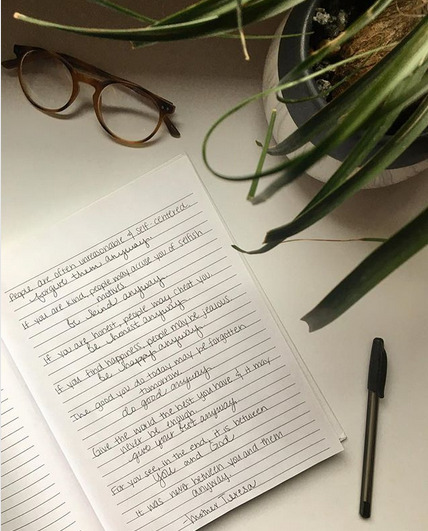 People are often unreasonable & self-centered.
forgive them anyway.
If you are kind, people may accuse you of selfish
motives
be kind anyway.
If you are honest, people may cheat you.
be honest anyway.
If you find happiness, people may be jealous.
be happy anyway.
The good you do today may be forgotten
tomorrow
do good anyway.
Give the world the best you have & it may
never be enough
give your best anyway.
For you see, in the end, it is between
you and God.
It was never between you and them
anyway.
Mother Teresa